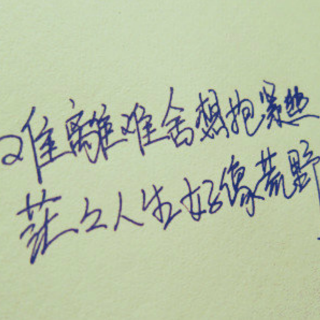 难離难舍想抱紧些
茫々人生好像荒野